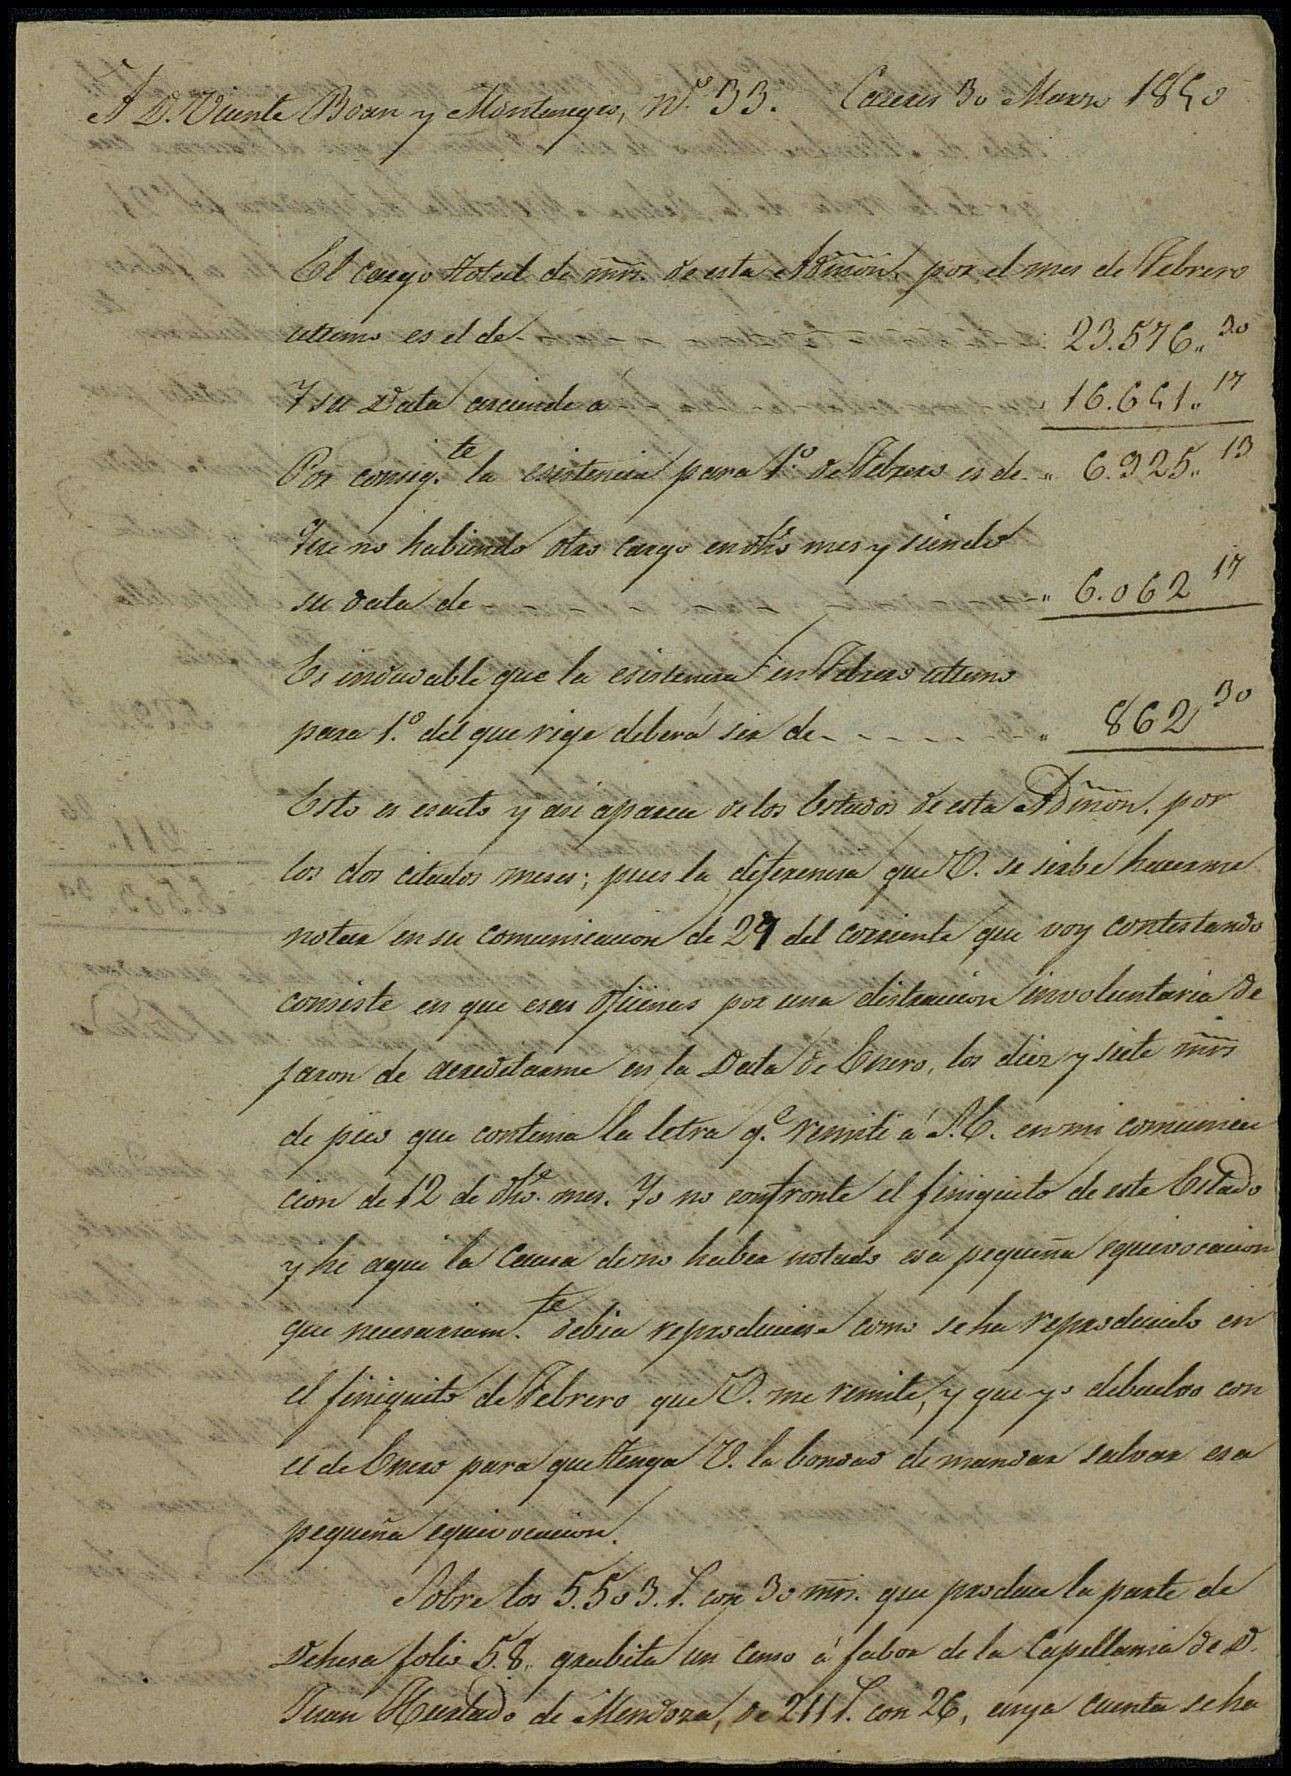 A D. Vicente Boan y Montenegro, N.º 33. Caceres 30 Marzo 1850
El cargo total de mrs. de esta Admon. por el mes de Febrero
ultimo es el de - 23.576,, 30
Y su Data asciende a 16.651,, 17
Por consig.te la existencia para 1.º de Febrero es de - 6.925,, 13
Que no habiendo otro cargo en dho mes y siendo
su data de - 6.062 17
Es indudable que la existencia en Febrero ultimo
para 1.º del que rige deberá ser de - 862 30
Esto es esacto y asi aparece de los Estados de esta Admon. por
los dos citados meses; pues la diferencia que V. se sirbe hacerme
notar en su comunicacion de 27 del corriente que voy contestando
consiste en que esas oficinas por una distraccion involuntaria de
jaron de acreditarme en la Data de Enero, los diez y siete mrs
de pico que contenia la letra q.e remiti á V. en mi comunica
cion de 12 de dho. mes. Yo no confronte el finiquito de este Estado
y he aqui la causa de no haber notado esa pequeña equivocacion
que necesariam.te debia reproducirse como se ha reproducido en
el finiquito de Febrero que V. me remite, y que yo debuelvo con
el de Enero para que tenga V. la bondad de mandar salvar esa
pequeña equivocacion.
Sobre los 5.503 r. con 30 mrs. que produce la parte de
Dehesa folio 58,, grabita un censo á fabor de la Capellania de D.
Juan Hurtado de Mendoza, de 211 r. con 26, cuya cuenta se ha